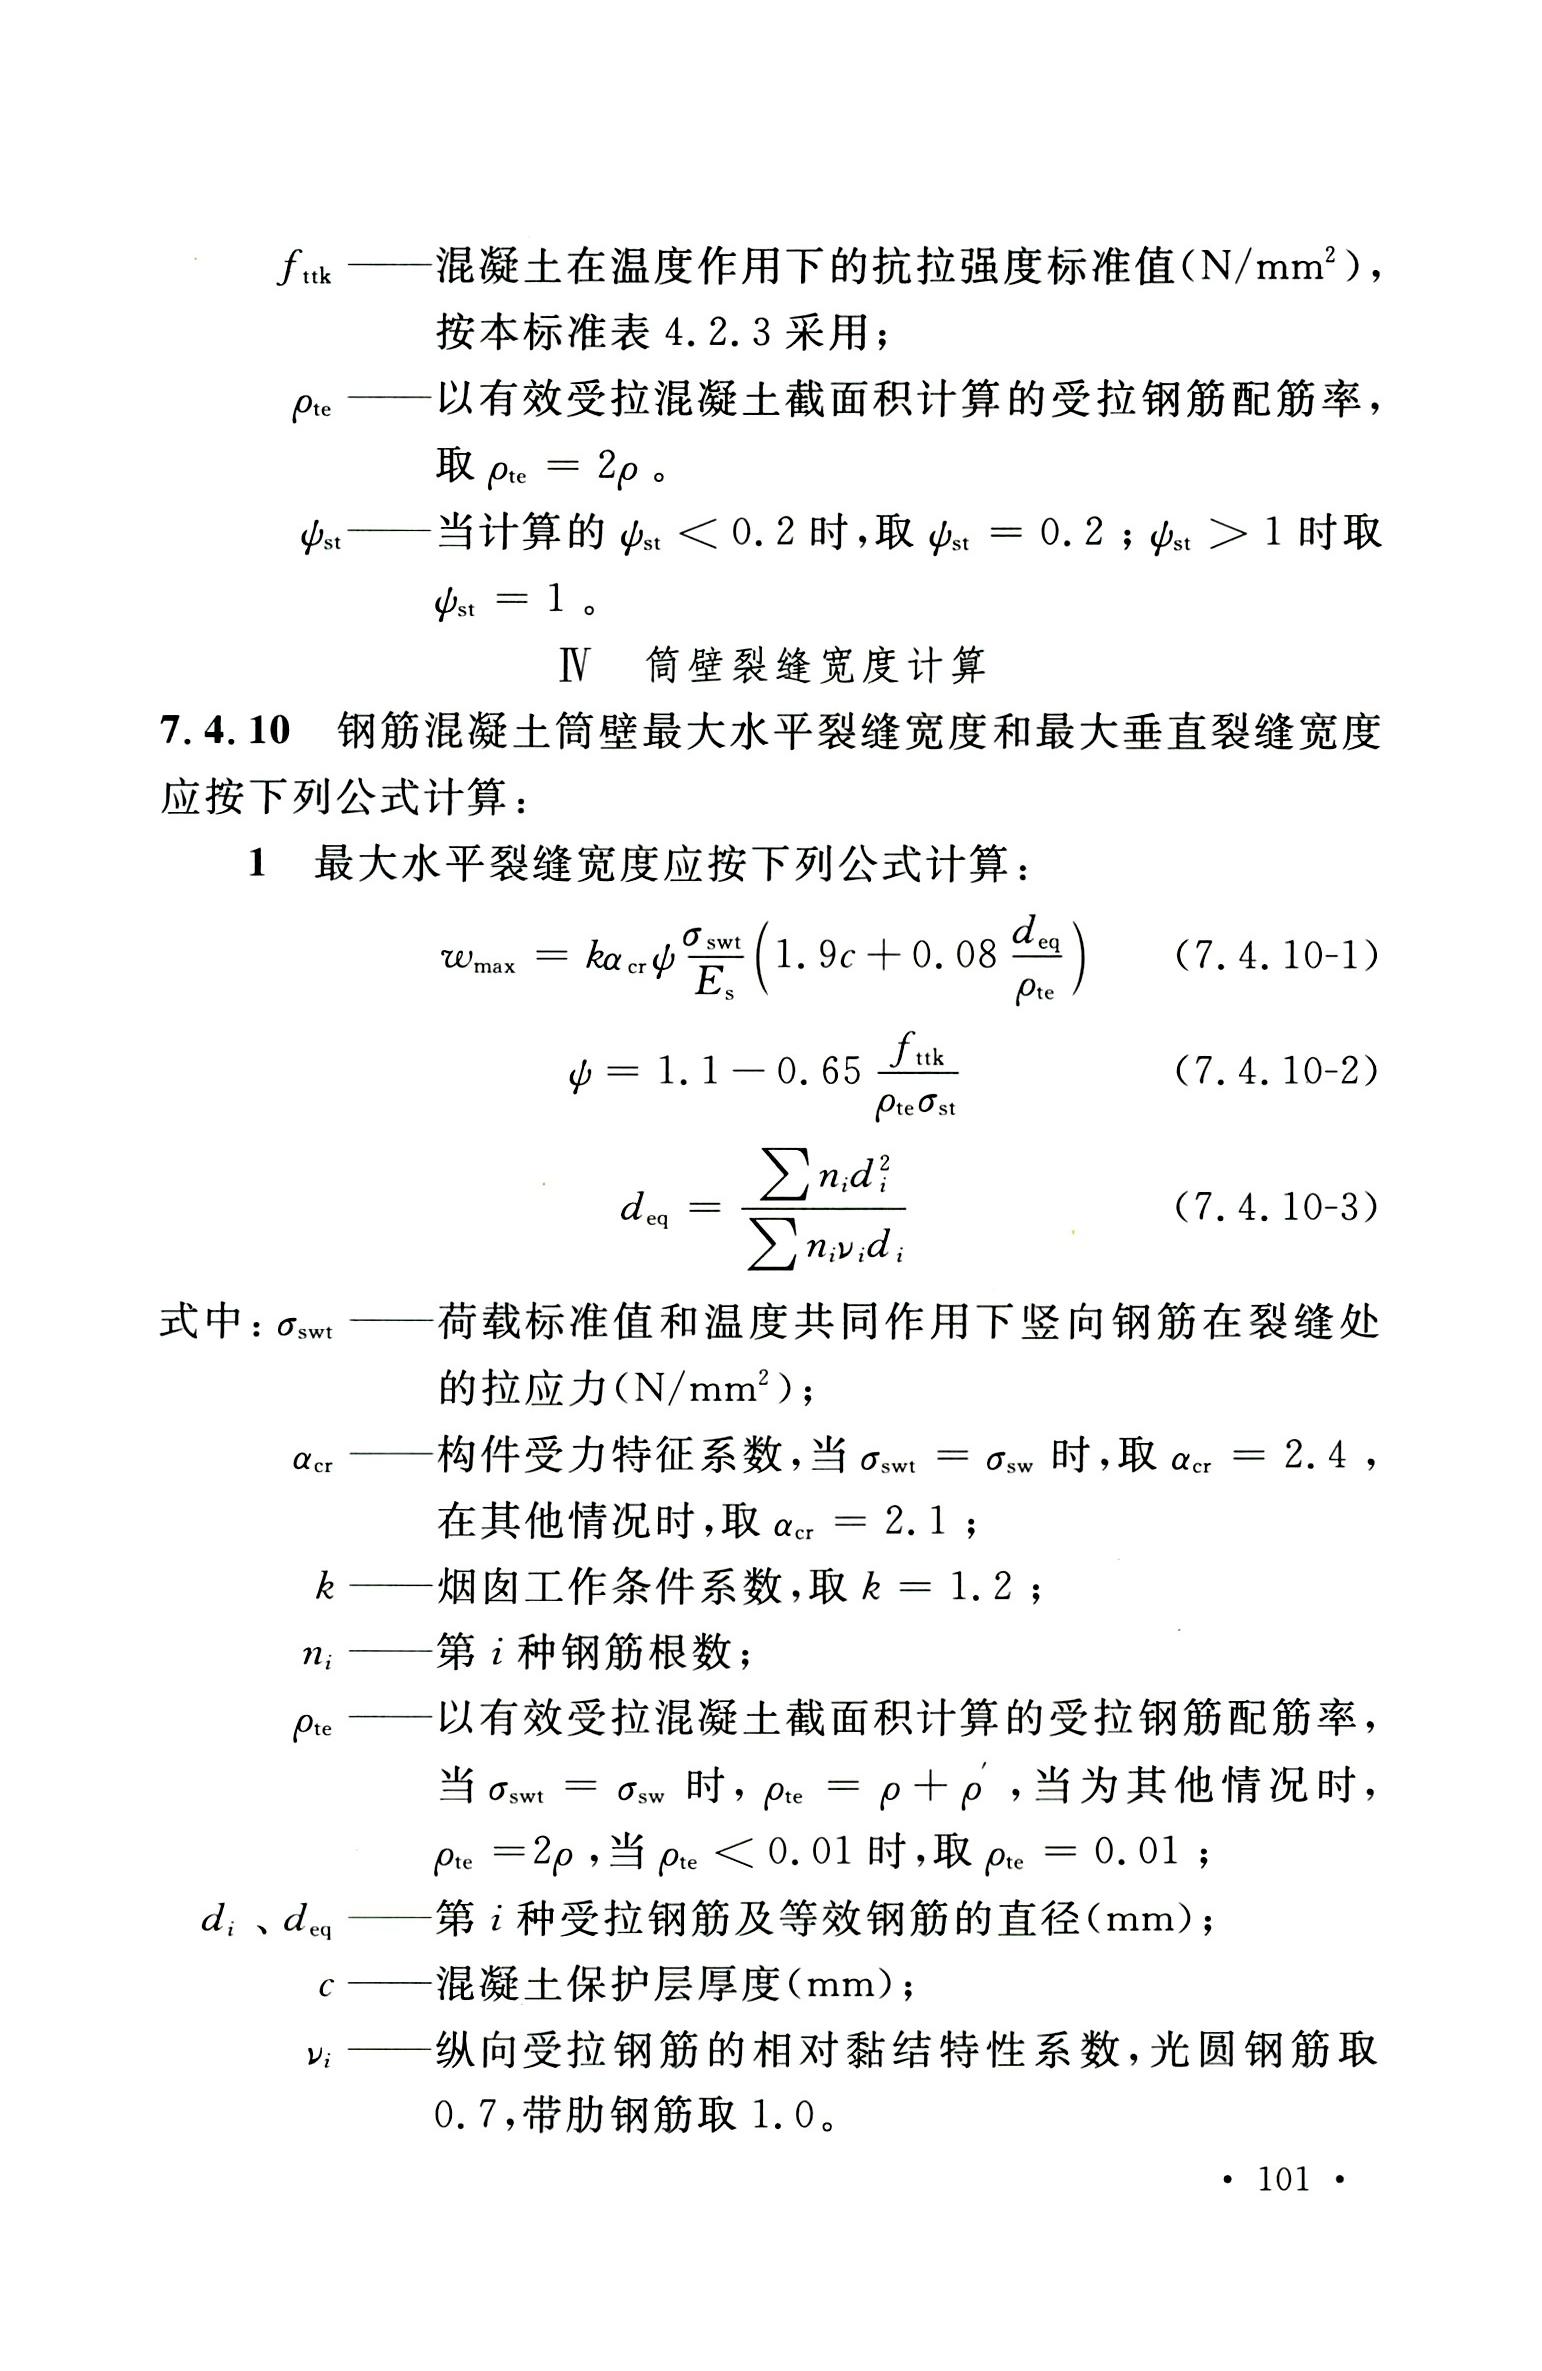 f_ttk ——混凝土在温度作用下的抗拉强度标准值(N/mm²),
按本标准表 4.2.3 采用;
ρ_te ——以有效受拉混凝土截面积计算的受拉钢筋配筋率,
取 ρ_te = 2ρ。
ψ_st——当计算的 ψ_st < 0.2 时,取 ψ_st = 0.2;ψ_st > 1 时取
ψ_st = 1。
Ⅳ 筒壁裂缝宽度计算
7.4.10 钢筋混凝土筒壁最大水平裂缝宽度和最大垂直裂缝宽度
应按下列公式计算:
1 最大水平裂缝宽度应按下列公式计算:
w_max = kα_cr ψ (σ_swt / E_s) (1.9c + 0.08 d_eq / ρ_te) (7.4.10-1)
ψ = 1.1 − 0.65 f_ttk / (ρ_te σ_st) (7.4.10-2)
d_eq = ∑n_i d_i² / ∑n_i ν_i d_i (7.4.10-3)
式中:σ_swt ——荷载标准值和温度共同作用下竖向钢筋在裂缝处
的拉应力(N/mm²);
α_cr ——构件受力特征系数,当 σ_swt = σ_sw 时,取 α_cr = 2.4,
在其他情况时,取 α_cr = 2.1;
k ——烟囱工作条件系数,取 k = 1.2;
n_i ——第 i 种钢筋根数;
ρ_te ——以有效受拉混凝土截面积计算的受拉钢筋配筋率,
当 σ_swt = σ_sw 时,ρ_te = ρ + ρ′,当为其他情况时,
ρ_te = 2ρ,当 ρ_te < 0.01 时,取 ρ_te = 0.01;
d_i、d_eq ——第 i 种受拉钢筋及等效钢筋的直径(mm);
c ——混凝土保护层厚度(mm);
ν_i ——纵向受拉钢筋的相对黏结特性系数,光圆钢筋取
0.7,带肋钢筋取 1.0。
· 101 ·